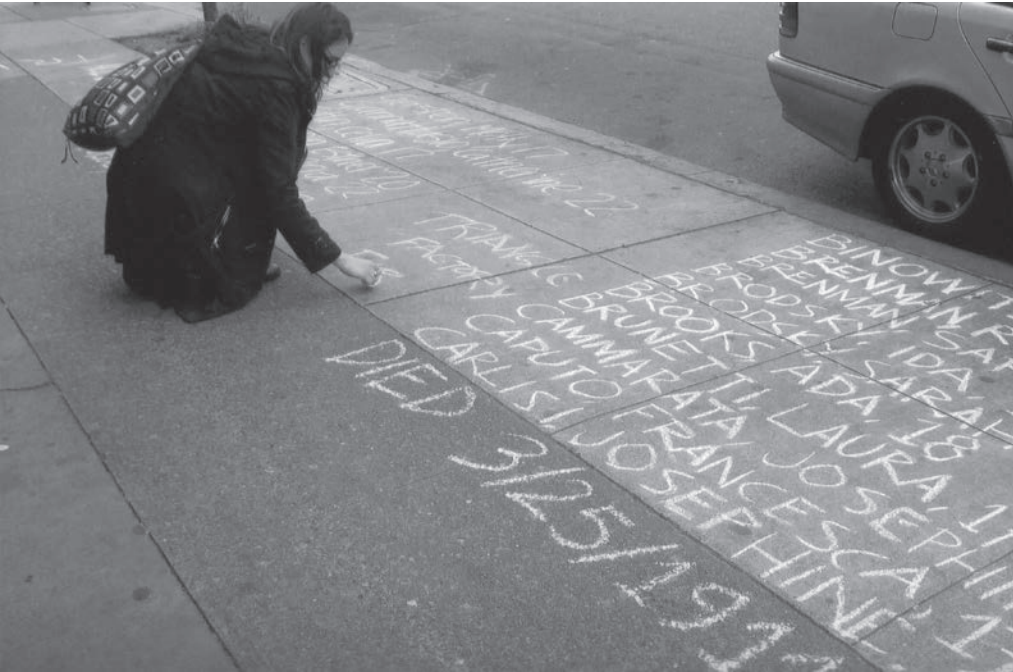 22
20
22
TRIANGLE
FACTORY
BINOWIT
BRENMAN R
BRENMAN, SAR
BRODSKY, IDA,
BRODSKY, SARAH
BROOKS ADA, 18
BRUNETTI, LAURA, 1
CAMMARATA JOSEPHIN
CAPUTO FRANCESCA, 1
CARLISI JOSEPHINE,
DIED 3/25/191